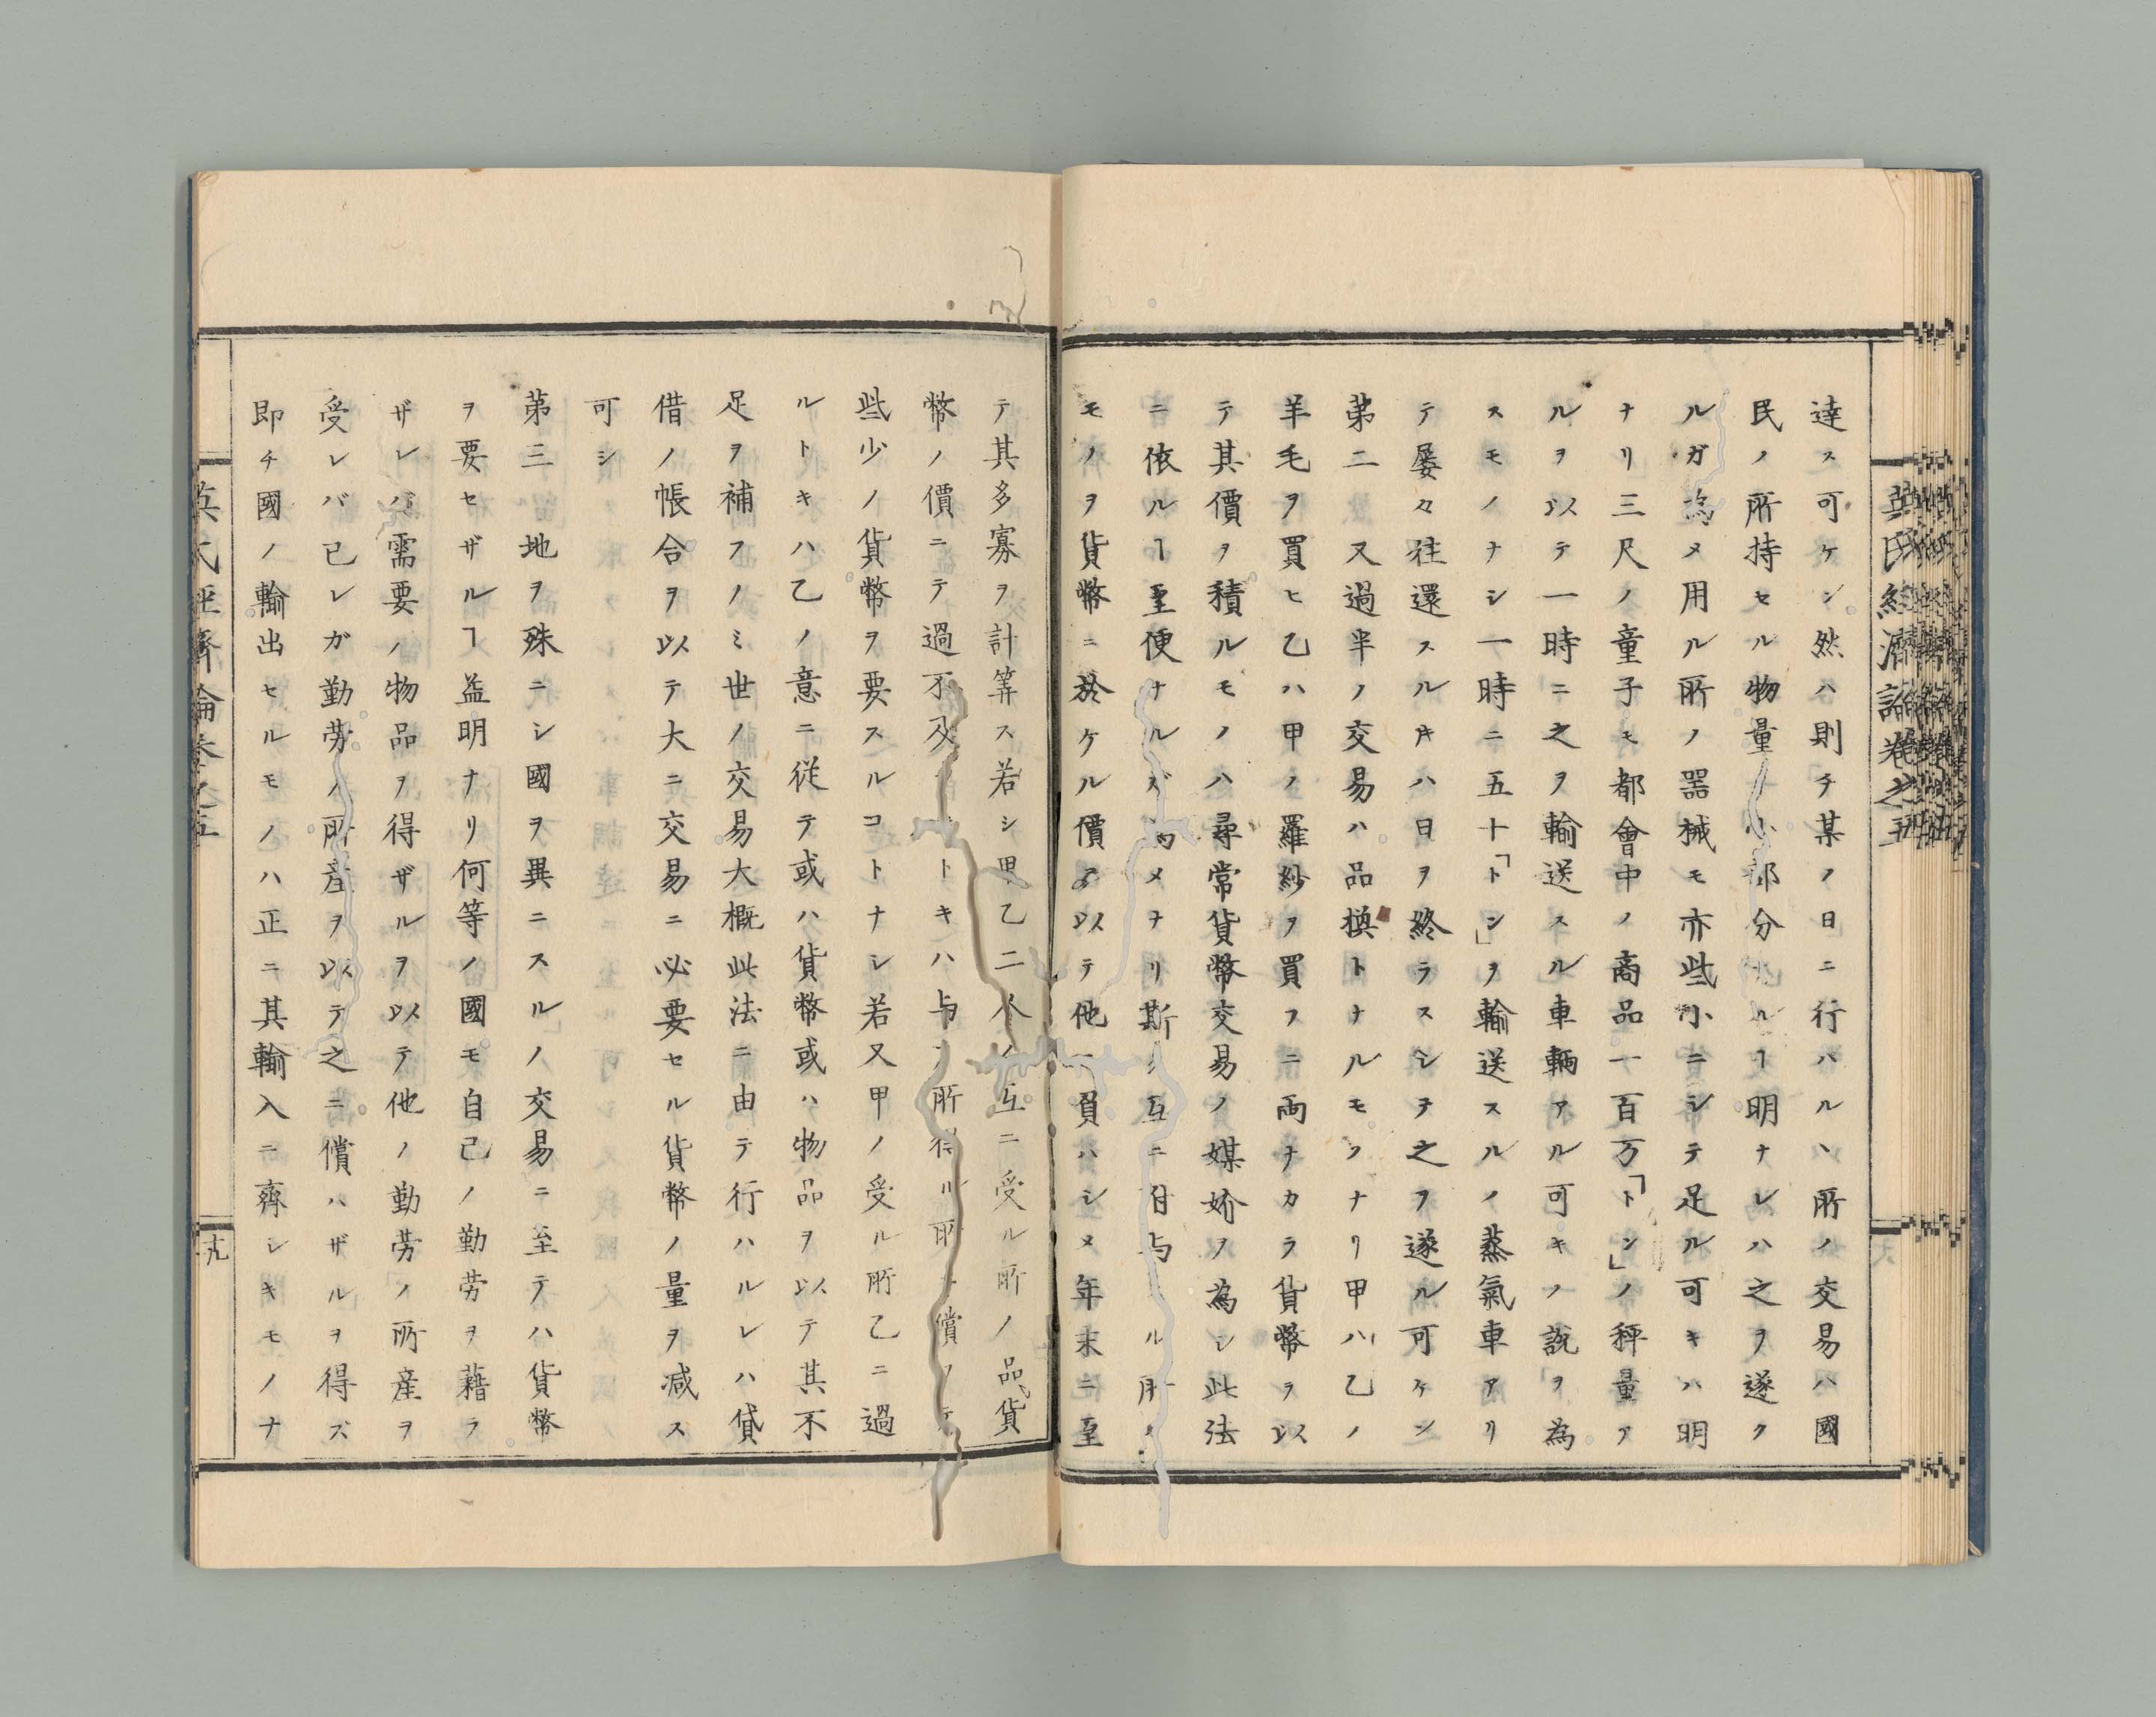 英氏經濟論卷之五
達ス可ケン然ハ則チ某ノ日ニ行ハルヽ所ノ交易ハ國
民ノ所持セル物量ノ小部分ナルヿ明ナレハ之ヲ遂ク
ルガ為メ用ル所ノ器械モ亦些小ニシテ足ル可キハ明
ナリ三尺ノ童子モ都會中ノ商品一百万「トン」ノ秤量ア
ルヲ以テ一時ニ之ヲ輸送スル車輌アル可キノ説ヲ為
スモノナシ一時ニ五十「トン」ヲ輸送スルノ蒸氣車アリ
テ屡々往還スルキハ日ヲ終ラスシテ之ヲ遂ル可ケン
第二又過半ノ交易ハ品換トナルモノナリ甲ハ乙ノ
羊毛ヲ買ヒ乙ハ甲ノ羅紗ヲ買フニ両ナカラ貨幣ヲ以
テ其價ヲ積ルモノハ尋常貨幣交易ノ媒妎ヲ為シ此法
ニ依ルヿ至便ナルガ為メナリ斯ク互ニ付与ル所ノ
モノヲ貨幣ニ於ケル價ヲ以テ他ニ負ハシメ年末ニ至
テ其多寡ヲ計筭ス若シ甲乙二人ノ互ニ受ル所ノ品貨
幣ノ價ニテ過不及ナキトキハ与フ所得ル所ヲ償フテ
些少ノ貨幣ヲ要スルコトナシ若又甲ノ受ル所乙ニ過
ルトキハ乙ノ意ニ従テ或ハ貨幣或ハ物品ヲ以テ其不
足ヲ補フノミ世ノ交易大概此法ニ由テ行ハルレハ貸
借ノ帳合ヲ以テ大ニ交易ニ必要セル貨幣ノ量ヲ减ス
可シ
第三地ヲ殊ニシ國ヲ異ニスルノ交易ニ至テハ貨幣
ヲ要セザルヿ益明ナリ何等ノ國モ自己ノ勤劳ヲ藉ラ
ザレバ需要ノ物品ヲ得ザルヲ以テ他ノ勤劳ノ所産ヲ
受レバ已レガ勤劳ノ所産ヲ以テ之ニ償ハザルヲ得ズ
即チ國ノ輸出セルモノハ正ニ其輸入ニ齊シキモノナ
英氏經濟論卷之五
十九